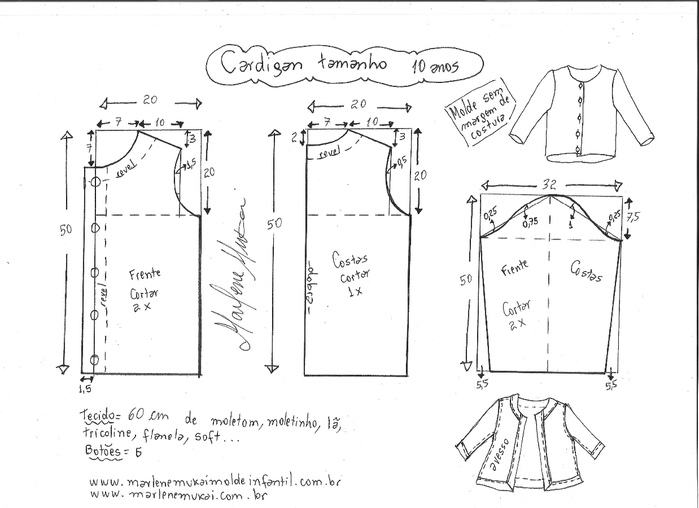 Cardigan tamanho 10 anos
Molde sem
margem de
costura
20
7 10
7
3
1,5
20
50
revel
revel
Frente
Cortar
2 x
1,5
Marlene Mukai
20
7 10
2
3
0,5
20
50
dobra
revel
Costas
cortar
1 x
32
0,25
0,75
1
0,25
7,5
50
Frente
Costas
Cortar
2 x
5,5
5,5
avesso
Tecido= 60 cm de moletom, moletinho, lã,
tricoline, flanela, soft...
Botões = 5
www.marlenemukaimoldeinfantil.com.br
www.marlenemukai.com.br